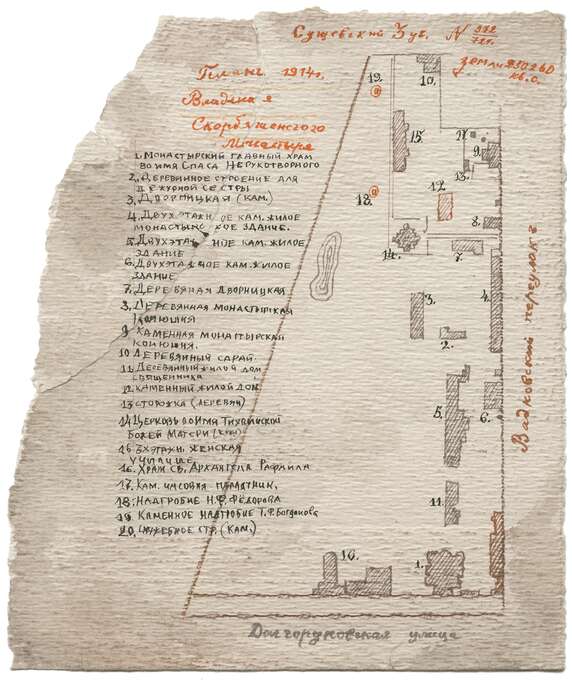 Сущевский 3 уч. N 592/721.
земли 9302,60 кв. с.
Планъ 1914г.
Владения
Скорбященского
М-настыря
1. Монастырский главный храм
во имя Спаса Нерукотворного
2. Деревянное строение для
дежурной сестры
3. Дворницкая (кам.)
4. Двухэтажное кам. жилое
монастырское здание.
5. Двухэтажное кам. жилое
здание
6. Двухэтажное кам. жилое
здание
7. Деревяная дворницкая
8. Деревянная монастырская
конюшня
9 Каменная монастырская
конюшня.
10 Деревянный сарай.
11. Деревянный жилой дом
священника
12. Каменный жилой дом
13 сторожка (деревян)
14 Церковь во имя Тихвинской
Божей Матери (кам)
15 3хэтажн. женская
училище
16. Храм св. Архангела Рафаила
17. Кам. часовня памятник,
18: Надгробие Н.Ф. Фёдорова
19. Каменное надгробие Т.Ф. Богданова
20. Служебное стр. (кам.)
19.
10.
15.
9.
13
12
18.
8.
14.
7.
3.
4.
2.
5.
6.
11.
16.
1.
Вадковский переулокъ
Долгоруковская улица